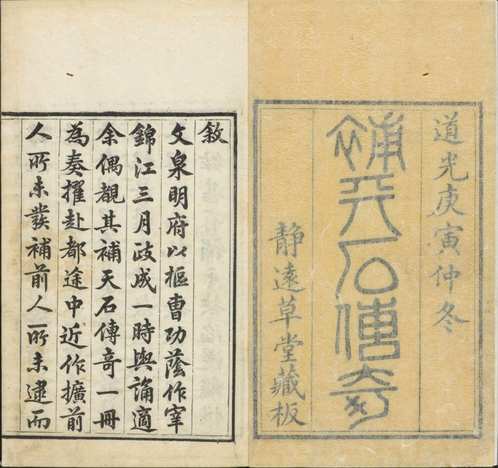 道光庚寅仲冬
補天石傳奇
靜遠草堂藏板
敘
文泉明府以樞曹功蔭作宰
錦江三月政成一時輿誦適
余偶覩其補天石傳奇一冊
為奏擢赴都途中近作擴前
人所未發補前人所未逮而